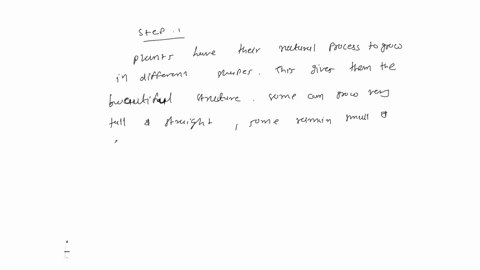 Step 1
plants have their natural process to grow
in different shapes. This gives them the
beautiful structure. some can grow very
tall & straight, some remain small &